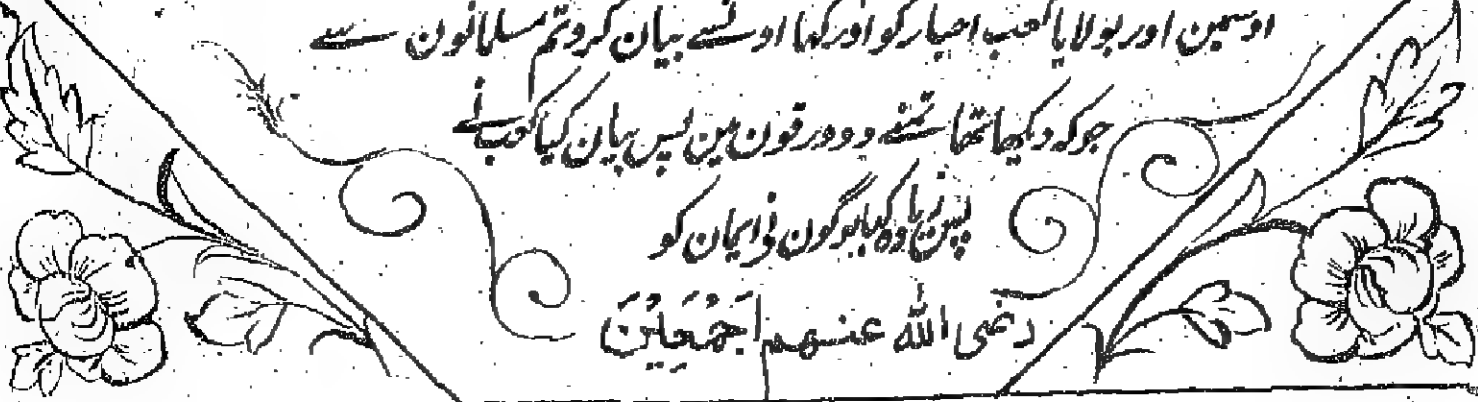 اوسمین اور بولایا کعب احبار کو اور کہا اونسے بیان کرو تم مسلمانون سے
جو کہ دیکھا تھا تمنے دو ورقون مین پس بیان کیا کعب نے
پس زیادہ کیا لوگون نے ایمان کو
رضی الله عنهم اَجْمَعِیْنَ